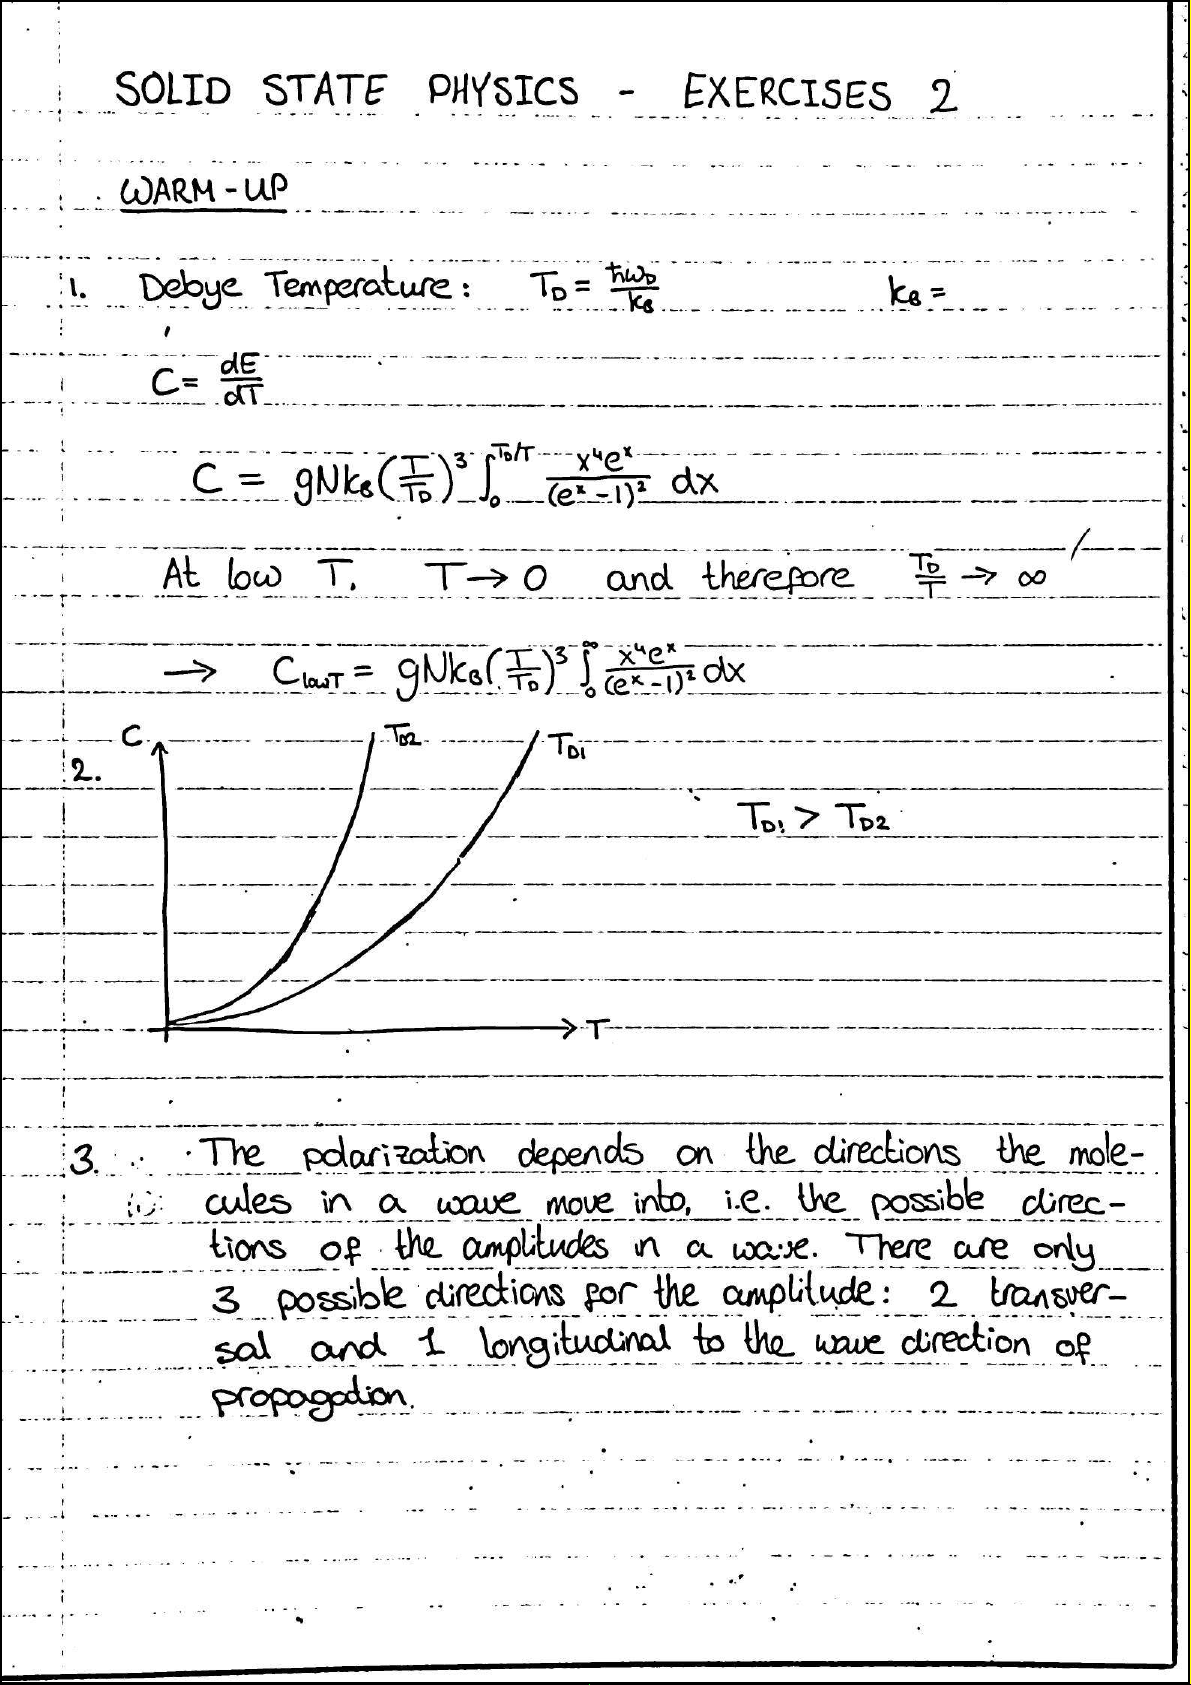 SOLID STATE PHYSICS - EXERCISES 2
WARM-UP
1. Debye Temperature: T_D = ħω_D/k_B k_B =
C = dE/dT
C = gNk_B(T/T_D)^3 ∫_0^{T_D/T} x^4e^x/(e^x-1)^2 dx
At low T. T → 0 and therefore T_D/T → ∞
→ C_lowT = gNk_B(T/T_D)^3 ∫_0^∞ x^4e^x/(e^x-1)^2 dx
C T_D2 T_D1
2.
T_D1 > T_D2
T
3. The polarization depends on the directions the mole-
cules in a wave move into, i.e. the possible direc-
tions of the amplitudes in a wave. There are only
3 possible directions for the amplitude: 2 transver-
sal and 1 longitudinal to the wave direction of
propagation.